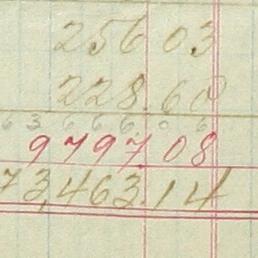 256 03
228.60
63666.06
9797.08
73,463.14